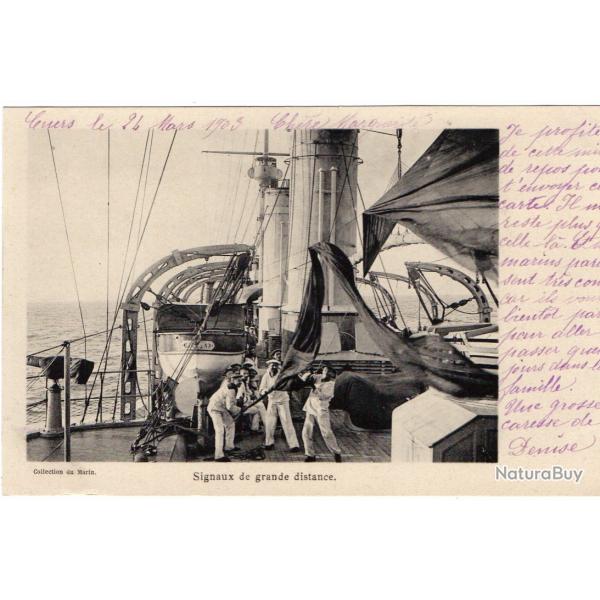 Cuers le 24 Mars 1903 Chère Marquise
Je profite
de cette mi
de repos pou
t'envoyer ce
carte. Il m
reste plus q
celle-là. Et
marins para
sent très con
car ils vont
bientôt par
pour aller
passer quel
jours dans le
famille.
Une grosse
caresse de
Denise
Collection du Marin.
Signaux de grande distance.
NaturaBuy